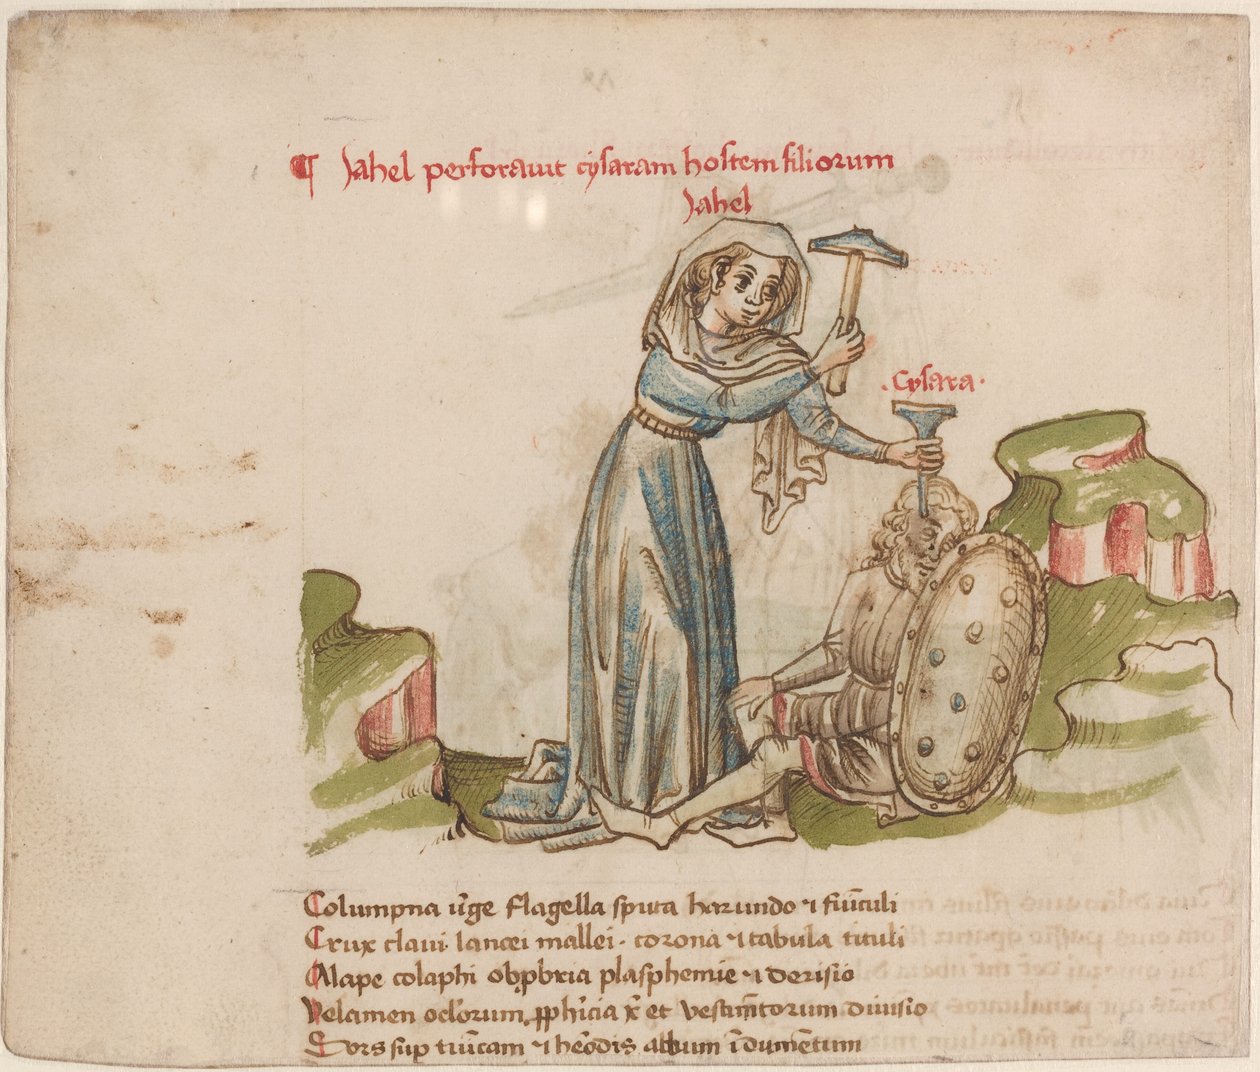 ¶ Jahel perforavit cysaram hostem filiorum
Jahel
.Cysara.
Columpna v̄ge flagella sputa harundo ⁊ funiculi
Crux claui lancei mallei · corona ⁊ tabula tituli
Alape colaphi obp̱bria plasphemie ⁊ derisio
Velamen oclorum, ꝓphīcia x̄ et vestim̄torum diuisio
Sors sup tunicam ⁊ hērodis album īdumētum